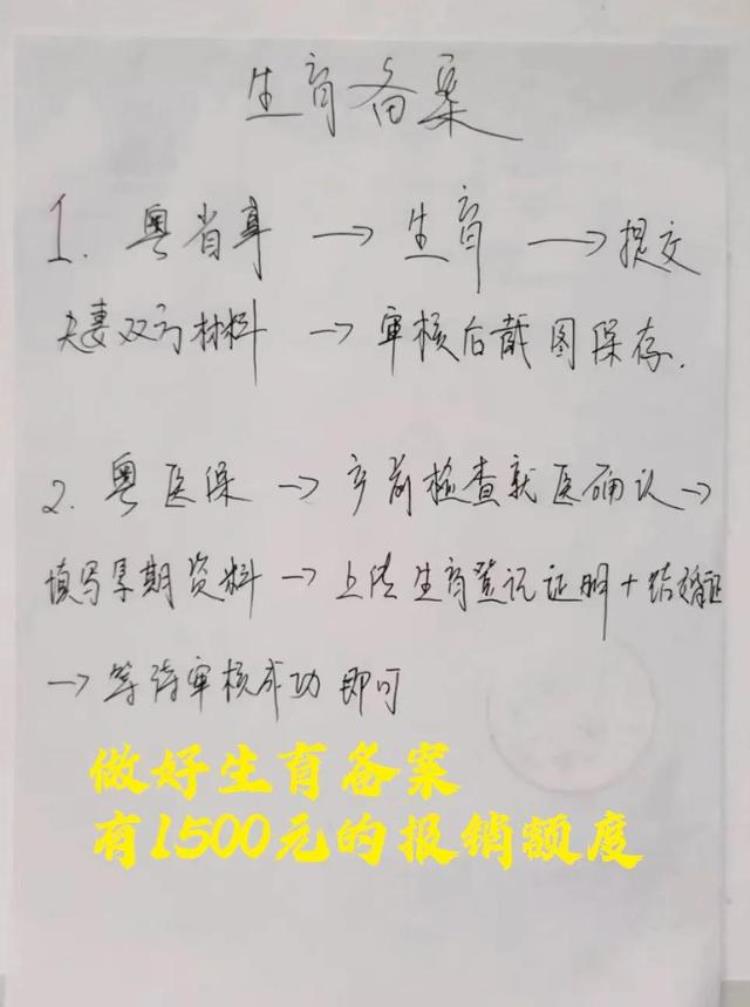 生育备案
1. 粤省事 → 生育 → 提交
夫妻双方材料 → 审核后截图保存.
2. 粤医保 → 产前检查就医确认 →
填写孕期资料 → 上传生育登记证明 + 结婚证
→ 等待审核成功即可
做好生育备案
有1500元的报销额度